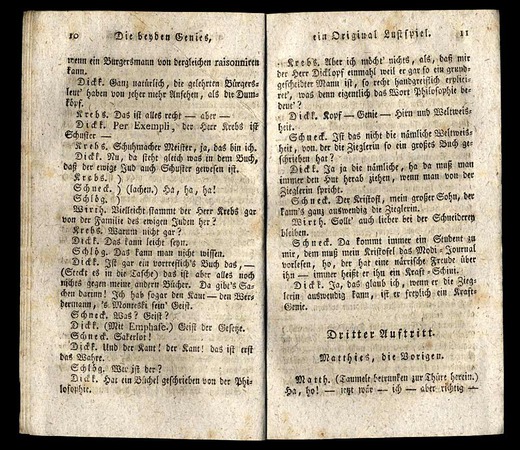 10 Die beyden Genies,
wenn ein Bürgersmann von dergleichen raisonniren
kann.
Dickk. Ganz natürlich, die gelehrten Bürgers-
leut' haben von jeher mehr Ansehen, als die Dum-
köpf.
Krebs. Das ist alles recht — aber —
Dickk. Per Exempli, der Herr Krebs ist
Schuster —
Krebs. Schuhmacher Meister, ja, das bin ich.
Dickk. Nu, da steht gleich was in dem Buch,
daß der ewige Jud auch Schuster gewesen ist.
Krebs. )
Schneck. ) (lachen.) Ha, ha, ha!
Schlög. )
Wirth. Vielleicht stammt der Herr Krebs gar
von der Familie des ewigen Juden her?
Krebs. Warum nicht gar?
Dickk. Das kann leicht seyn.
Schlög. Das kann man nicht wissen.
Dickk. Ist gar ein vortreflich's Buch das, —
(Steckt es in die Tasche) das ist aber alles noch
nichts gegen meine andern Bücher. Da gibt's Sa-
chen darinn! Ich hab sogar den Kant — den Wer-
thermann, 's Monteski sein' Geist.
Schneck. Was? Geist?
Dickk. (Mit Emphase.) Geist der Gesetze.
Schneck. Sakerlot!
Dickk. Und der Kant! der Kant! das ist erst
das Wahre.
Schlög. Wer ist der?
Dickk. Hat ein Büchel geschrieben von der Phi-
losophie.
ein Original Lustspiel. 11
Krebs. Aber ich möcht' nichts, als, daß mir
der Herr Dickkopf einmahl weil er gar so ein grund-
gescheidter Mann ist, so recht handgreiflich erpliti-
ret', was denn eigentlich das Wort Philosophie be-
deut'?
Dickk. Kopf — Genie — Hirn und Weltweis-
heit.
Schneck. Ist das nicht die nämliche Weltweis-
heit, von der die Zieglerin so ein großes Buch ge-
schrieben hat?
Dickk. Ja ja die nämliche, ha da muß man
immer den Hut herab ziehen, wenn man von der
Zieglerin spricht.
Schneck. Der Kristofl, mein großer Sohn, der
kann's ganz auswendig die Zieglerin.
Wirth. Sollt' auch lieber bei der Schneiderey
bleiben.
Schneck. Da kommt immer ein Student zu
mir, dem muß mein Kristofel das Modi-Journal
vorlesen, ho, der hat eine närrische Freude über
ihn — immer heißt er ihn ein Kraft-Scheni.
Dickk. Ja, das glaub ich, wenn er die Zieg-
lerin auswendig kann, ist er freylich ein Kraft-
Genie.
Dritter Auftritt.
Matthies, die Vorigen.
Matth. (Taumelt betrunken zur Thüre herein.)
Ha, ho! — jetzt wär — ich — aber richtig —